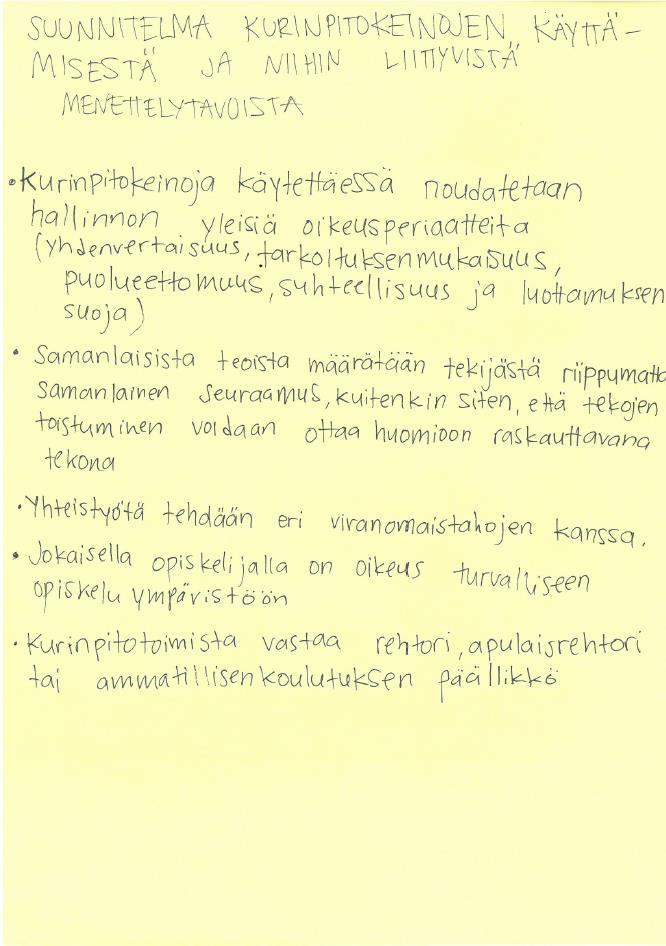 SUUNNITELMA KURINPITOKEINOJEN KÄYTTÄ-
MISESTÄ JA NIIHIN LIITTYVISTÄ
MENETTELYTAVOISTA
• Kurinpitokeinoja käytettäessä noudatetaan
hallinnon yleisiä oikeusperiaatteita
(yhdenvertaisuus, tarkoituksenmukaisuus,
puolueettomuus, suhteellisuus ja luottamuksen
suoja)
• Samanlaisista teoista määrätään tekijästä riippumatta
samanlainen seuraamus, kuitenkin siten, että tekojen
toistuminen voidaan ottaa huomioon raskauttavana
tekona
• Yhteistyötä tehdään eri viranomaistahojen kanssa.
• Jokaisella opiskelijalla on oikeus turvalliseen
opiskelu ympäristöön
• Kurinpitotoimista vastaa rehtori, apulaisrehtori
tai ammatillisenkoulutuksen päällikkö